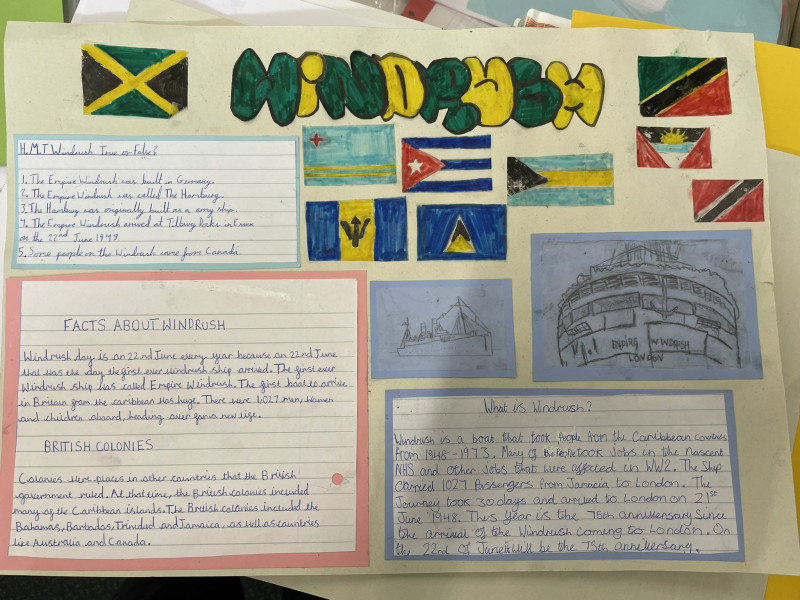 WINDRUSH
H.M.T Windrush True or False?
1. The Empire Windrush was built in Germany.
2. The Empire Windrush was called The Hamburg.
3. The Hamburg was originally built as a army ship.
4. The Empire Windrush arrived at Tilbury Docks in Essex
on the 22nd June 1948.
5. Some people on the Windrush came from Canada
FACTS ABOUT WINDRUSH
Windrush day is on 22nd June every year because on 22nd June
that was the day the first ever windrush ship arrived. The first ever
Windrush ship was called Empire Windrush. The first boat to arrive
in Britain from the caribbean was huge. There were 1,027 men, women
and children aboard, heading over for a new life.
BRITISH COLONIES
Colonies were places in other countries that the British
government ruled. At that time, the British colonies included
many of the Caribbean islands. The British colonies included the
Bahamas, Barbados, Trinidad and Jamaica, as well as countries
like Australia and Canada.
EMPIRE WINDRUSH
LONDON
What is Windrush?
Windrush is a boat that took people from the Caribbean countries
from 1948-1973. Many of the People took Jobs in the nascent
NHS and other Jobs that were affected in WW2. The Ship
carried 1027 Passengers from Jamacia to London. The
Journey took 30 days and arrived to London on 21st
June 1948. This year is the 75th anniversary Since
the arrival of the Windrush coming to London. On
the 22nd of June it will be the 75th anniversary.